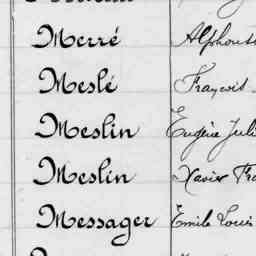 Merré Alphonse
Meslé François
Meslin Eugène Juli
Meslin Xavier Fra
Messager Emile Louis